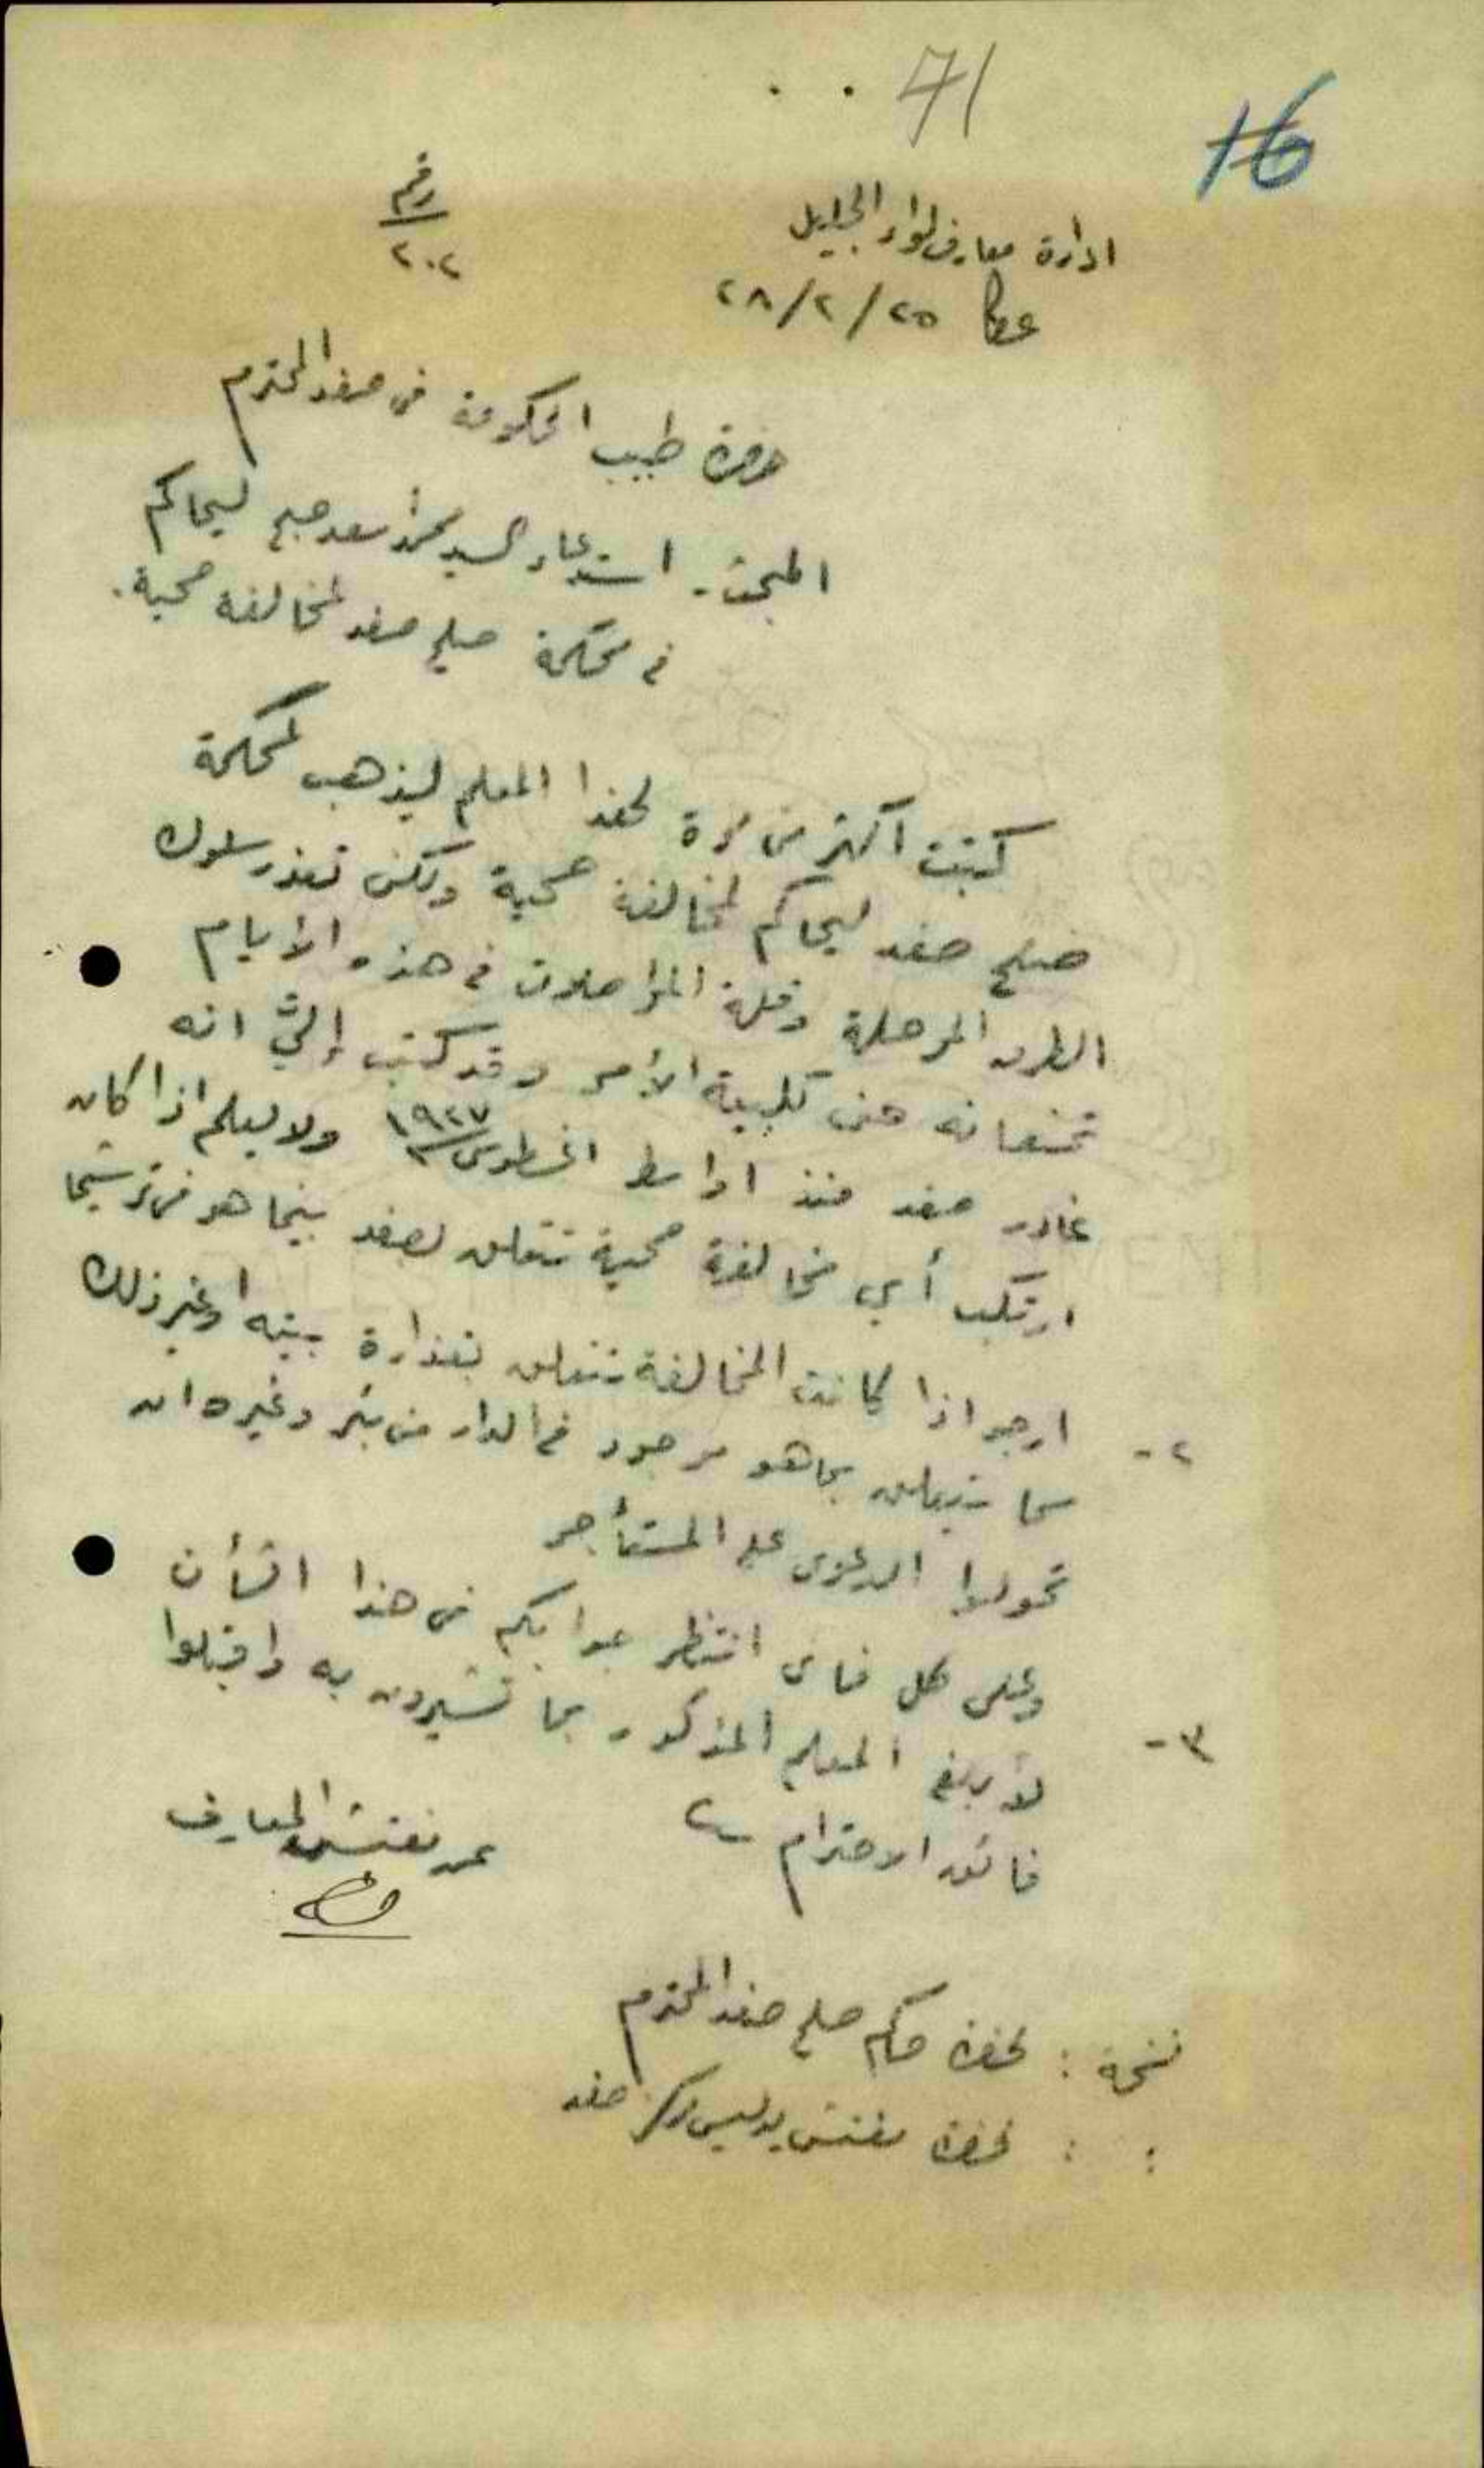 71
16
ادارة معارف لواء الجليل
رقم
٢٠٢
عكا ٢٥/٢/٢٨
حضرة طبيب الحكومة في صفد المحترم
المبحث - استدعاء السيد محمد اسعد صبح ليحاكم
في محكمة صلح صفد لمخالفة صحية.
كتبت اكثر من مرة لهذا المعلم ليذهب لمحكمة
صلح صفد ليحاكم لمخالفة صحية ولكن تعذر سلوك
الطرق الموحلة وقلة المواصلات في هذه الأيام
تمنعانه عن تلبية الأمر وقد كتب إليّ انه
غادر صفد منذ اواسط اغسطوس ١٩٢٧ ولا يعلم اذا كان
ارتكب أي مخالفة صحية تتعلق بصفد بينما هو في ترشيحا
٢- ارجو اذا كانت المخالفة تتعلق بقذارة بيته او غير ذلك
مما يتعلق بما هو موجود في الدار من بئر وغيره ان
تحولوا الدعوى على المستأجر
٣- وعلى كل فاني انتظر جوابكم في هذا الشأن
لأبلغ المعلم المذكور بما تشيرون به واقبلوا
فائق الاحترام
عن مفتش المعارف
نسخة : لحضرة حاكم صلح صفد المحترم
: : لحضرة مفتش بوليس مركز صفد